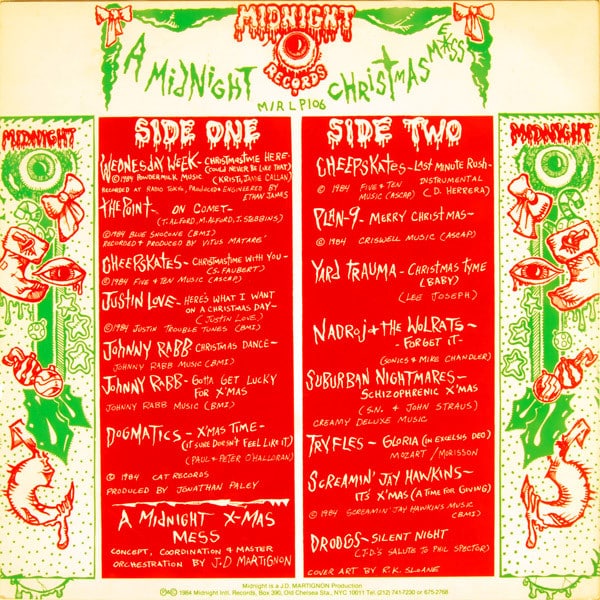 MIDNIGHT
RECORDS
A MIDNIGHT CHRISTMAS MESS
MIRLP106
MIDNIGHT
MIDNIGHT
SIDE ONE
WEDNESDAY WEEK - CHRISTMASTIME HERE
(COULD NEVER BE LIKE THAT)
© 1984 POWDERMILK MUSIC (KRISTI, JANE CALLAN)
RECORDED AT RADIO TOKYO, PRODUCED + ENGINEERED BY
ETHAN JAMES
THE POINT - ON COMET -
(T. ALFORD, M. ALFORD, J. STEBBINS)
© 1984 BLUE SNOCONE (BMI)
RECORDED + PRODUCED BY VITUS MATARE
CHEEPSKATES - CHRISTMASTIME WITH YOU -
(S. FAUBERT)
© 1984 FIVE & TEN MUSIC (ASCAP)
JUSTIN LOVE - HERE'S WHAT I WANT
ON A CHRISTMAS DAY -
(JUSTIN LOVE)
© 1984 JUSTIN TROUBLE TUNES (BMI)
JOHNNY RABB CHRISTMAS DANCE -
JOHNNY RABB MUSIC (BMI)
JOHNNY RABB - GOTTA GET LUCKY
FOR X'MAS
JOHNNY RABB MUSIC (BMI)
DOGMATICS - X'MAS TIME -
(IT SURE DOESN'T FEEL LIKE IT)
(PAUL & PETER O'HALLORAN)
© 1984 CAT RECORDS
PRODUCED BY JONATHAN PALEY
A MIDNIGHT X-MAS
MESS
CONCEPT, COORDINATION & MASTER
ORCHESTRATION BY J.D MARTIGNON
SIDE TWO
CHEEPSKATES - LAST MINUTE RUSH -
INSTRUMENTAL
© 1984 FIVE & TEN
MUSIC (ASCAP) (D. HERRERA)
PLAN-9 - MERRY CHRISTMAS -
© 1984 CRISWELL MUSIC (ASCAP)
YARD TRAUMA - CHRISTMAS TYME
(BABY)
(LEE JOSEPH)
NADROJ & THE WOLRATS -
- FORGET IT -
(SONICS & MIKE CHANDLER)
SUBURBAN NIGHTMARES -
SCHIZOPHRENIC X'MAS
(S.N. & JOHN STRAUS)
CREAMY DELUXE MUSIC
TRYFLES - GLORIA (IN EXCELSIS DEO)
MOZART / MORISSON
SCREAMIN' JAY HAWKINS -
IT'S X'MAS (A TIME FOR GIVING)
© 1984 SCREAMIN' JAY HAWKINS MUSIC
(BMI)
DROOGS - SILENT NIGHT
(J.D.'S SALUTE TO PHIL SPECTOR)
COVER ART BY R.K. SLOANE
Midnight is a J.D. MARTIGNON Production
℗© 1984 Midnight Intl. Records, Box 390, Old Chelsea Sta., NYC 10011 Tel: (212) 741-7230 or 675-2768